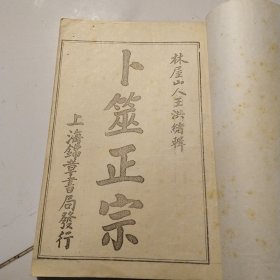 林屋山人王洪緒輯
卜筮正宗
上海錦章書局發行